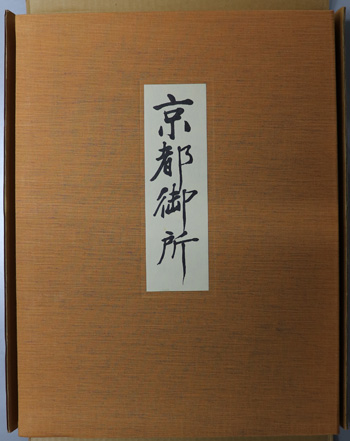 京都御所